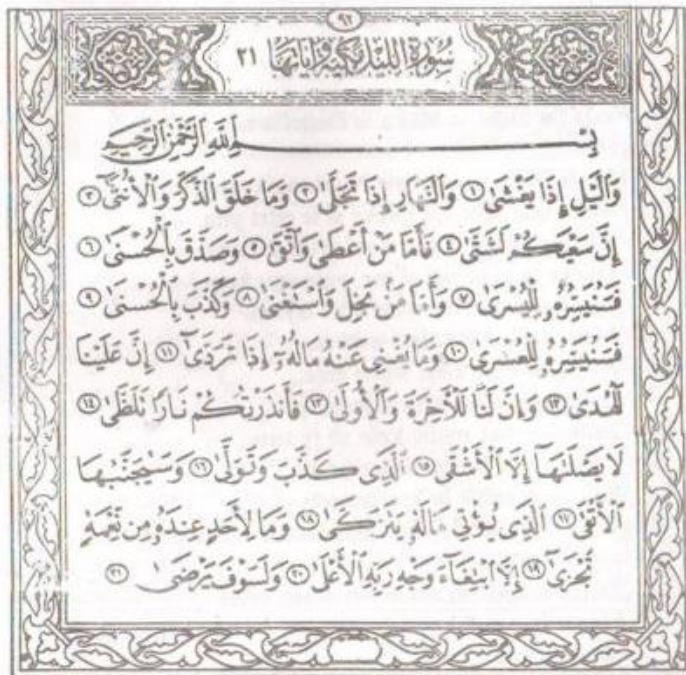 ٩٢
سُورَةُ اللَّيْلِ مَكِّيَّةٌ وَآيَاتُهَا ٢١
بِسْمِ اللَّهِ الرَّحْمَٰنِ الرَّحِيمِ
وَالَّيْلِ إِذَا يَغْشَىٰ ١ وَالنَّهَارِ إِذَا تَجَلَّىٰ ٢ وَمَا خَلَقَ الذَّكَرَ وَالْأُنثَىٰ ٣
إِنَّ سَعْيَكُمْ لَشَتَّىٰ ٤ فَأَمَّا مَنْ أَعْطَىٰ وَاتَّقَىٰ ٥ وَصَدَّقَ بِالْحُسْنَىٰ ٦
فَسَنُيَسِّرُهُ لِلْيُسْرَىٰ ٧ وَأَمَّا مَنْ بَخِلَ وَاسْتَغْنَىٰ ٨ وَكَذَّبَ بِالْحُسْنَىٰ ٩
فَسَنُيَسِّرُهُ لِلْعُسْرَىٰ ١٠ وَمَا يُغْنِي عَنْهُ مَالُهُ إِذَا تَرَدَّىٰ ١١ إِنَّ عَلَيْنَا
لَلْهُدَىٰ ١٢ وَإِنَّ لَنَا لَلْآخِرَةَ وَالْأُولَىٰ ١٣ فَأَنذَرْتُكُمْ نَارًا تَلَظَّىٰ ١٤
لَا يَصْلَاهَا إِلَّا الْأَشْقَى ١٥ الَّذِي كَذَّبَ وَتَوَلَّىٰ ١٦ وَسَيُجَنَّبُهَا
الْأَتْقَى ١٧ الَّذِي يُؤْتِي مَالَهُ يَتَزَكَّىٰ ١٨ وَمَا لِأَحَدٍ عِندَهُ مِن نِّعْمَةٍ
تُجْزَىٰ ١٩ إِلَّا ابْتِغَاءَ وَجْهِ رَبِّهِ الْأَعْلَىٰ ٢٠ وَلَسَوْفَ يَرْضَىٰ ٢١